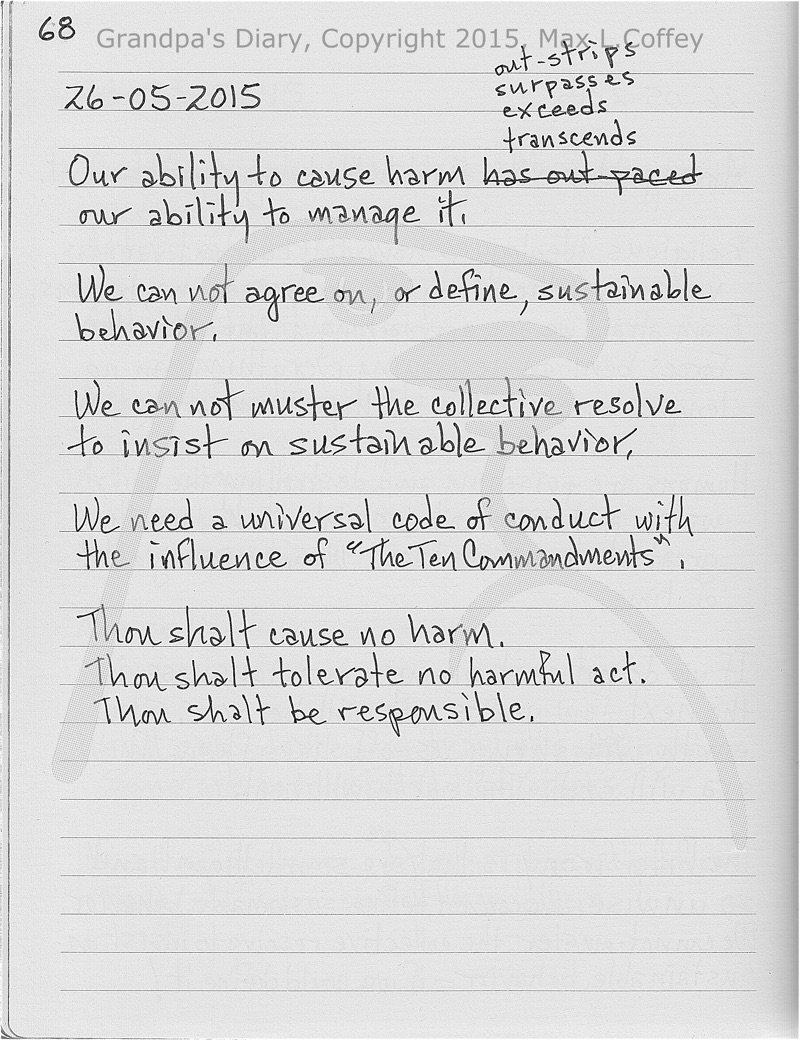 68
Grandpa's Diary, Copyright 2015, Max L.Coffey
out-strips
surpasses
26-05-2015
exceeds
transcends
Our ability to cause harm has out-paced
our ability to manage it.
We can not agree on, or define, sustainable
behavior.
We can not muster the collective resolve
to insist on sustainable behavior.
We need a universal code of conduct with
the influence of "The Ten Commandments".
Thou shalt cause no harm.
Thou shalt tolerate no harmful act.
Thou shalt be responsible.